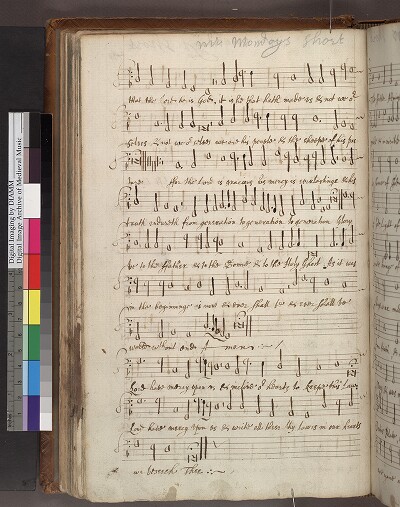 Mr Mondays Short
that the Lord he is God, it is he that hath made us & not we o
selves & not we o selves we are his people & the sheepe of his pas
ture for the Lord is gracious his mercy is everlastinge & his
truth endureth from generation to generation to generation Glory
be to the ffather & to the Sonne & to the Holy Ghost As it was
in the beginninge is now & ever shall be & ever shall be
world without end A men
Lord have mercy upon us & incline or hearts to keepe this Law
Lord have mercy upon us & write all these thy lawes in our hearts
we beseech Thee
Digital Imaging by DIAMM
Digital Image Archive of Medieval Music